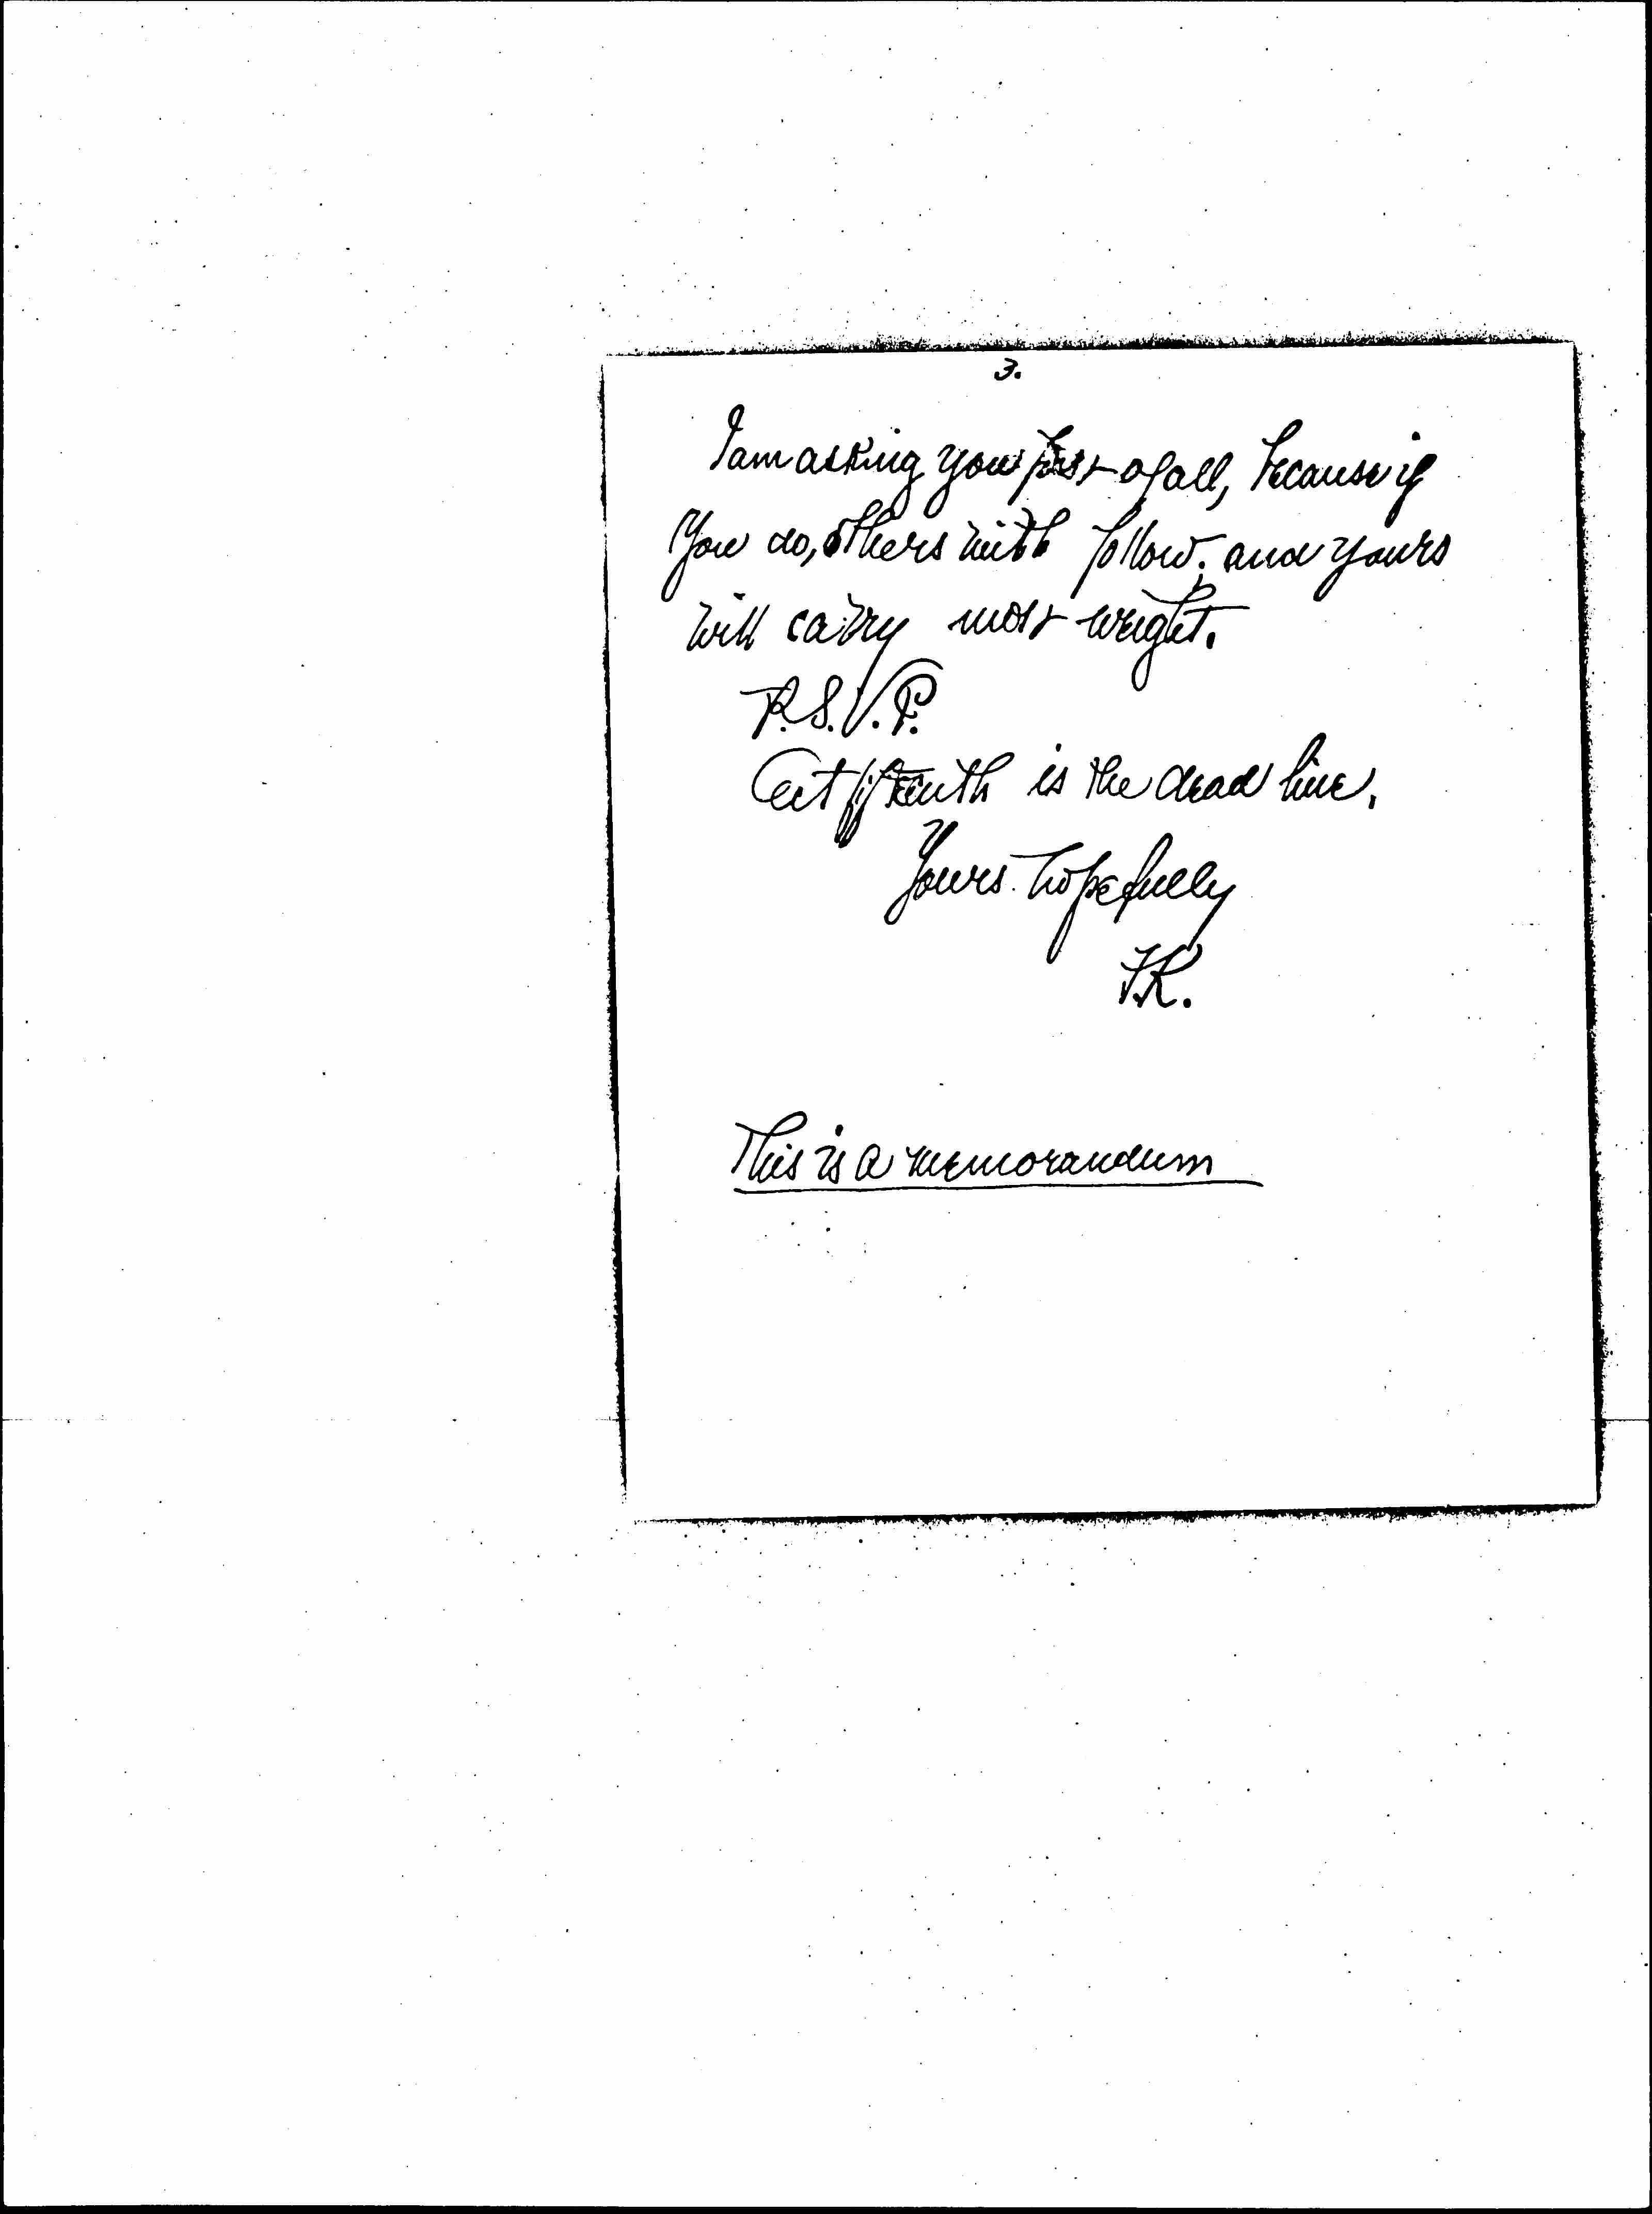 3.
I am asking you first of all, because if
you do, others will follow; and yours
will carry most weight.
R.S.V.P.
Oct fifteenth is the dead line.
Yours hopefully
This is a memorandum